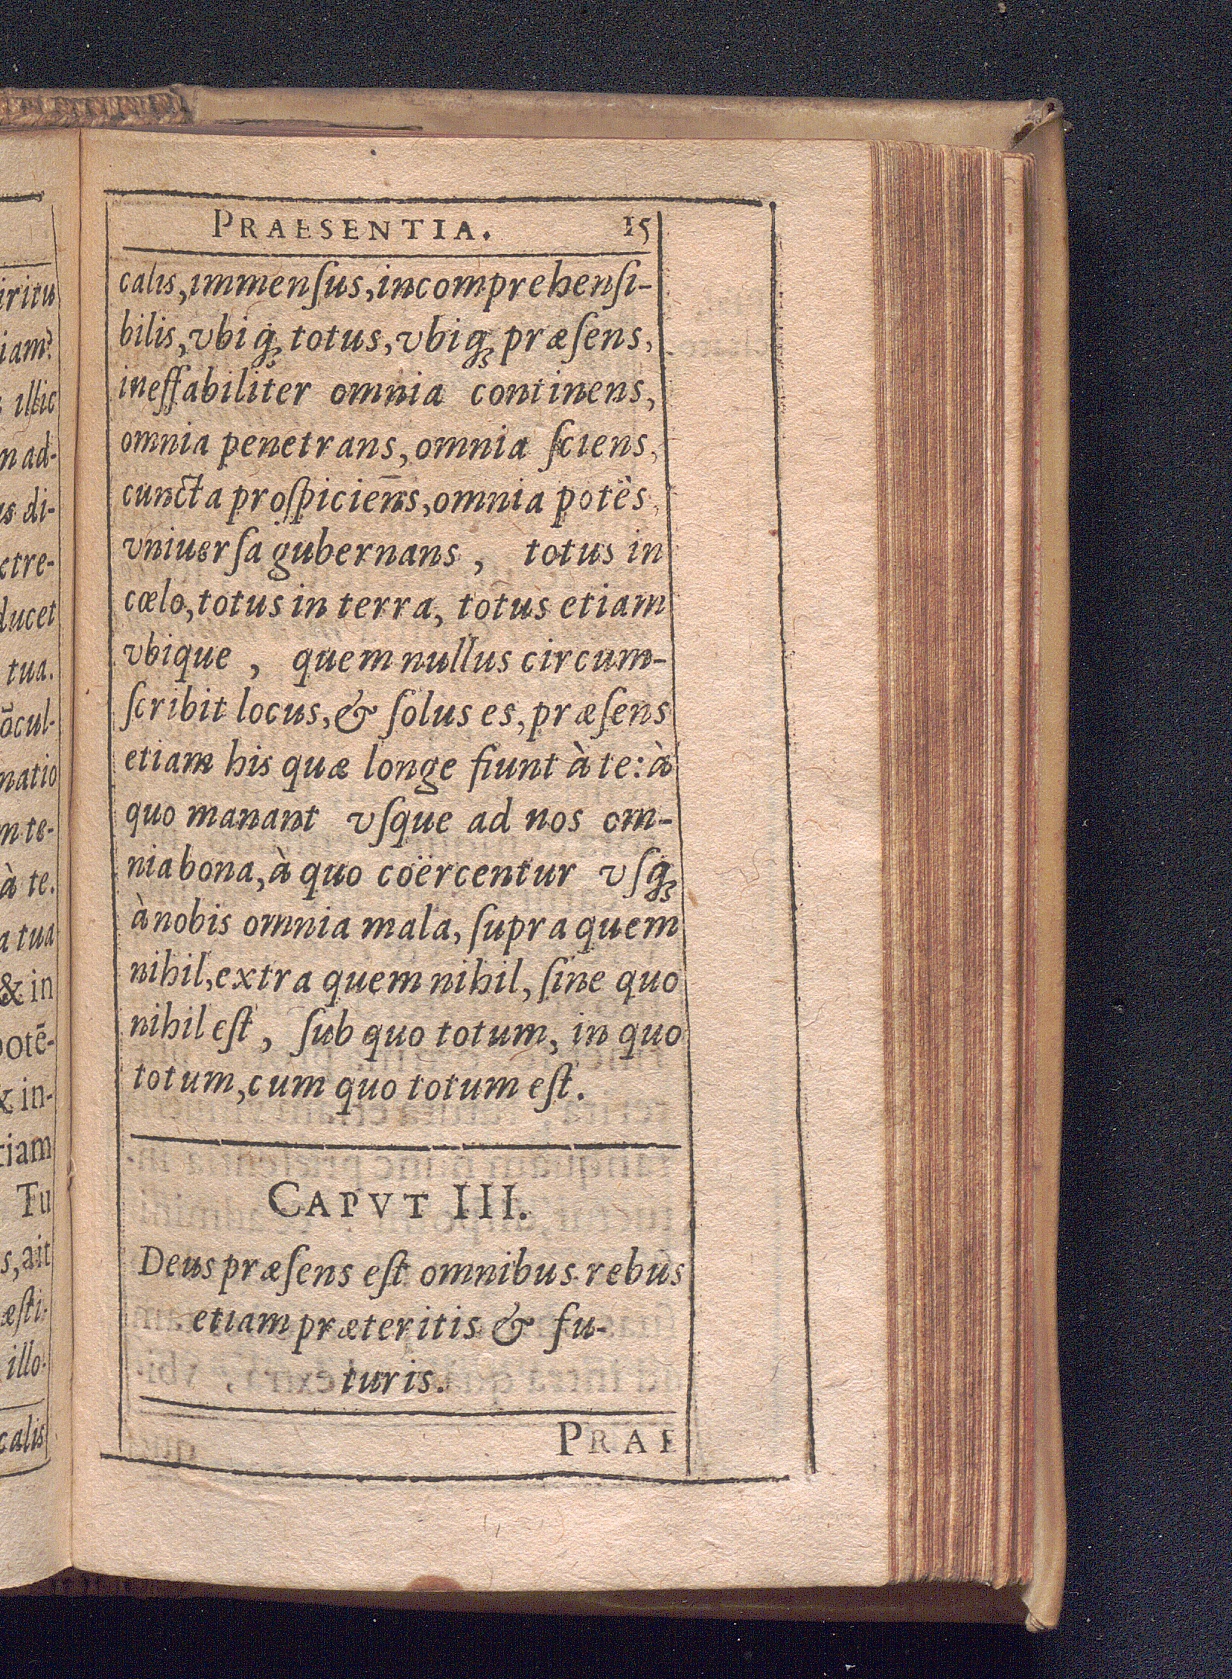 PRAESENTIA. 15
calis, immenſus, incomprehenſi-
bilis, vbiq́ꝫ totus, vbiqꝫ præſens,
ineffabiliter omnia continens,
omnia penetrans, omnia ſciens,
cuncta proſpiciens, omnia potẽs,
vniuerſa gubernans, totus in
cœlo, totus in terra, totus etiam
vbique, quem nullus circum-
ſcribit locus, & ſolus es, præſens
etiam his quæ longe fiunt à te: à
quo manant vſque ad nos om-
nia bona, à quo coërcentur vſqꝫ
à nobis omnia mala, ſupra quem
nihil, extra quem nihil, ſine quo
nihil eſt, ſub quo totum, in quo
totum, cum quo totum eſt.
CAPVT III.
Deus præſens eſt omnibus rebus
etiam præteritis & fu-
turis.
PRAE
illic
di-
ducet
tua.
natio
à te.
tua
& in
in-
Tu
ait
illo-
calis